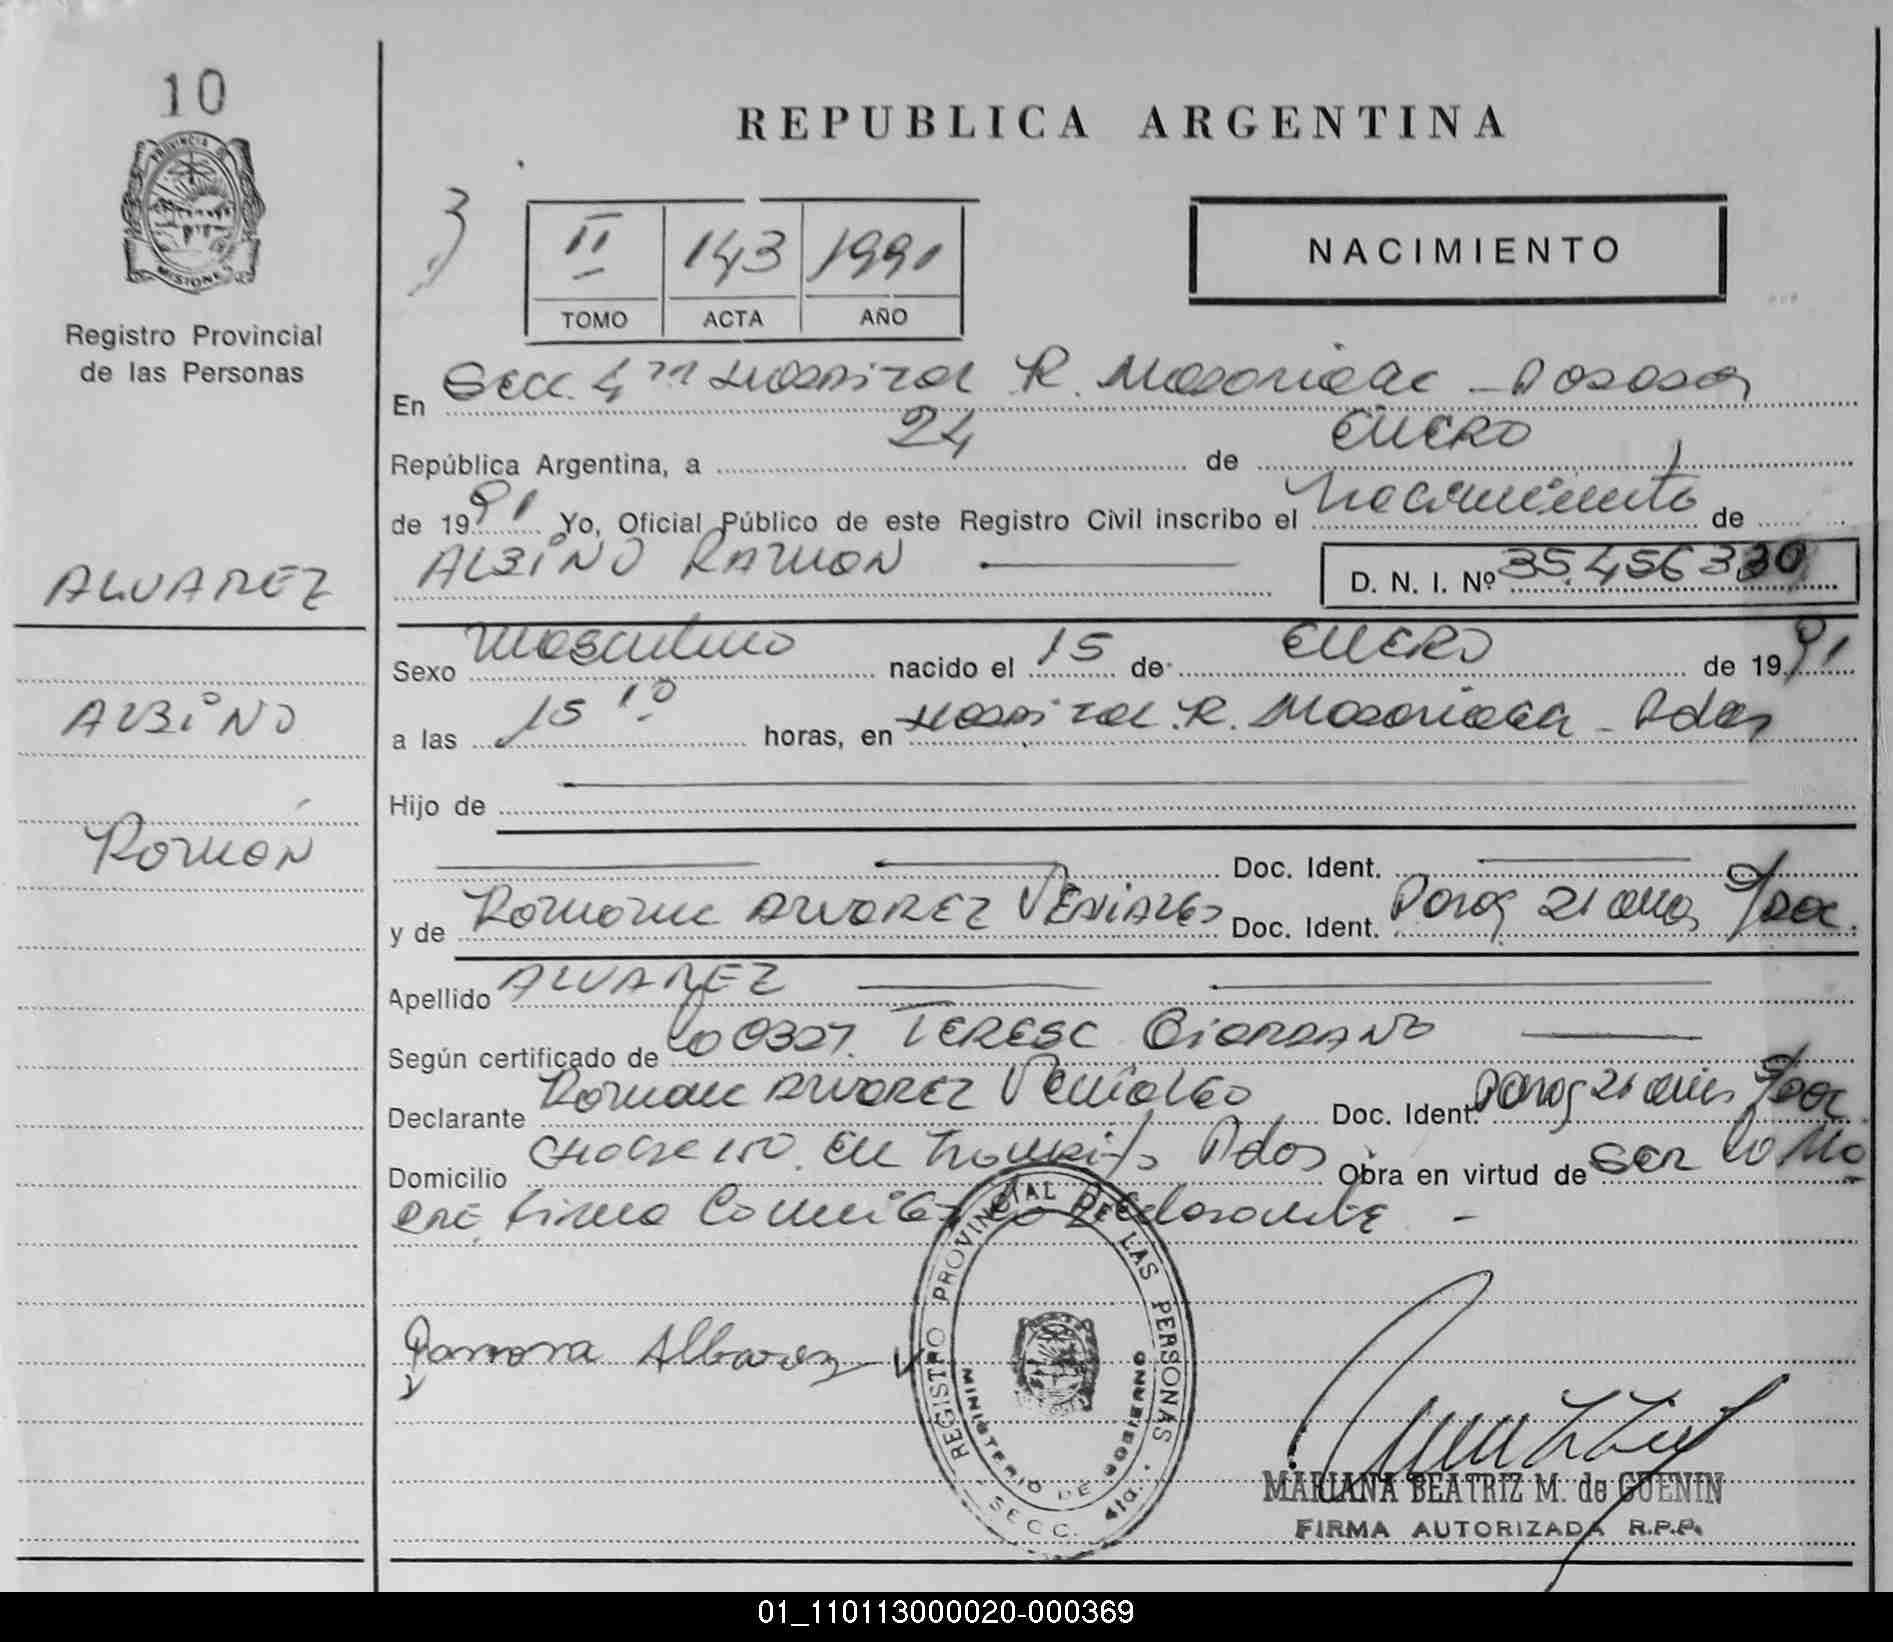 10
REPUBLICA ARGENTINA
PROVINCIA DE
MISIONES
Registro Provincial
de las Personas
3
II 143 1991
TOMO ACTA AÑO
NACIMIENTO
En Secc. 4ta Hospital R. Madariaga - Posadas
República Argentina, a 24 de ENERO
de 1991 Yo, Oficial Público de este Registro Civil inscribo el nacimiento de
ALVAREZ
ALBINO RAMON D. N. I. Nº 35.456330
Sexo Masculino nacido el 15 de ENERO de 1991
ALBINO
a las 15 10 horas, en Hospital R. Madariaga - Pdas
Hijo de
Ramón
Doc. Ident.
y de Ramona ALVAREZ Doc. Ident. Parag 21 años s/doc.
Apellido ALVAREZ
Según certificado de TERESA GIORDANO
Declarante Ramona ALVAREZ Doc. Ident. Parag 21 años s/doc
Domicilio Chacra 150. En Transito Pdas Obra en virtud de ser la Ma
dre, firma la declarante -
Ramona Albarez
REGISTRO PROVINCIAL DE LAS PERSONAS
MINISTERIO DE GOBIERNO
SECC. 4ta.
MARIANA BEATRIZ M. de GUENIN
FIRMA AUTORIZADA R.P.P.
01_110113000020-000369